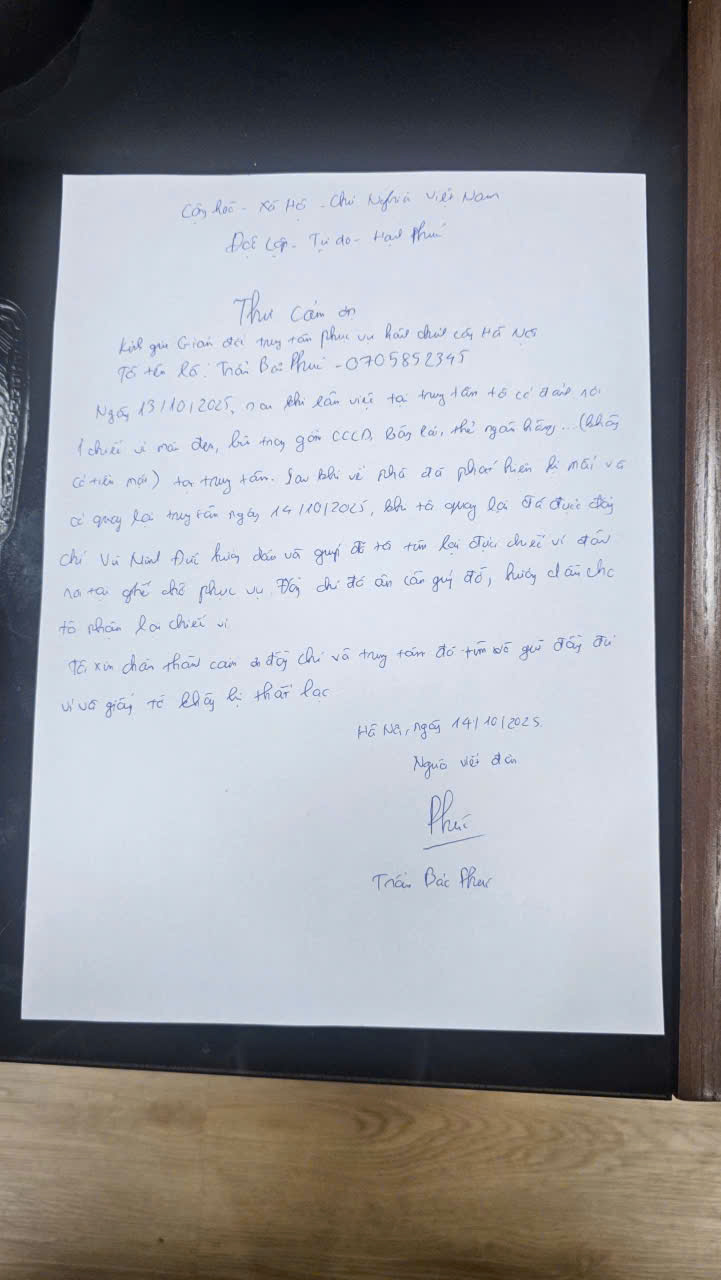 Cộng hòa - Xã Hội - Chủ Nghĩa Việt Nam
Độc Lập - Tự do - Hạnh Phúc
Thư Cảm ơn
Kính gửi Giám đốc trung tâm phục vụ hành chính công Hà Nội
Tôi tên là: Trần Bắc Phúc - 0705852345
Ngày 13/10/2025, sau khi làm việc tại trung tâm tôi có đánh rơi
1 chiếc ví màu đen, bên trong gồm CCCD, Bằng lái, thẻ ngân hàng... (không
có tiền mặt) tại trung tâm. Sau khi về nhà đã phát hiện bị mất và
có quay lại trung tâm ngày 14/10/2025, khi tôi quay lại đã được đồng
chí Vũ Minh Đức hướng dẫn và giúp đỡ tôi tìm lại được chiếc ví đánh
rơi tại ghế chờ phục vụ. Đồng chí đó ân cần giúp đỡ, hướng dẫn cho
tôi nhận lại chiếc ví
Tôi xin chân thành cảm ơn đồng chí và trung tâm đã tìm và giữ đầy đủ
ví và giấy tờ không bị thất lạc
Hà Nội, ngày 14/10/2025.
Người viết đơn
Phúc
Trần Bắc Phúc